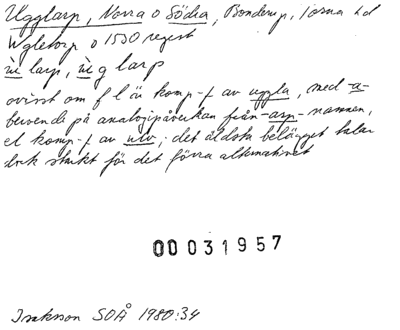 Ugglarp, Norra o Södra, Bonderup, Torna hd
Ugletorp o 1530 regest
ù̀ larp, ù̀ g larp
ovisst om f l är komp-f av uggla, med -a-
beroende på analogipåverkan från -arp-namnen,
el komp-f av ulv; det äldsta belägget talar
dock starkt för det förra alternativet
00031957
Isaksson SOÅ 1980:34